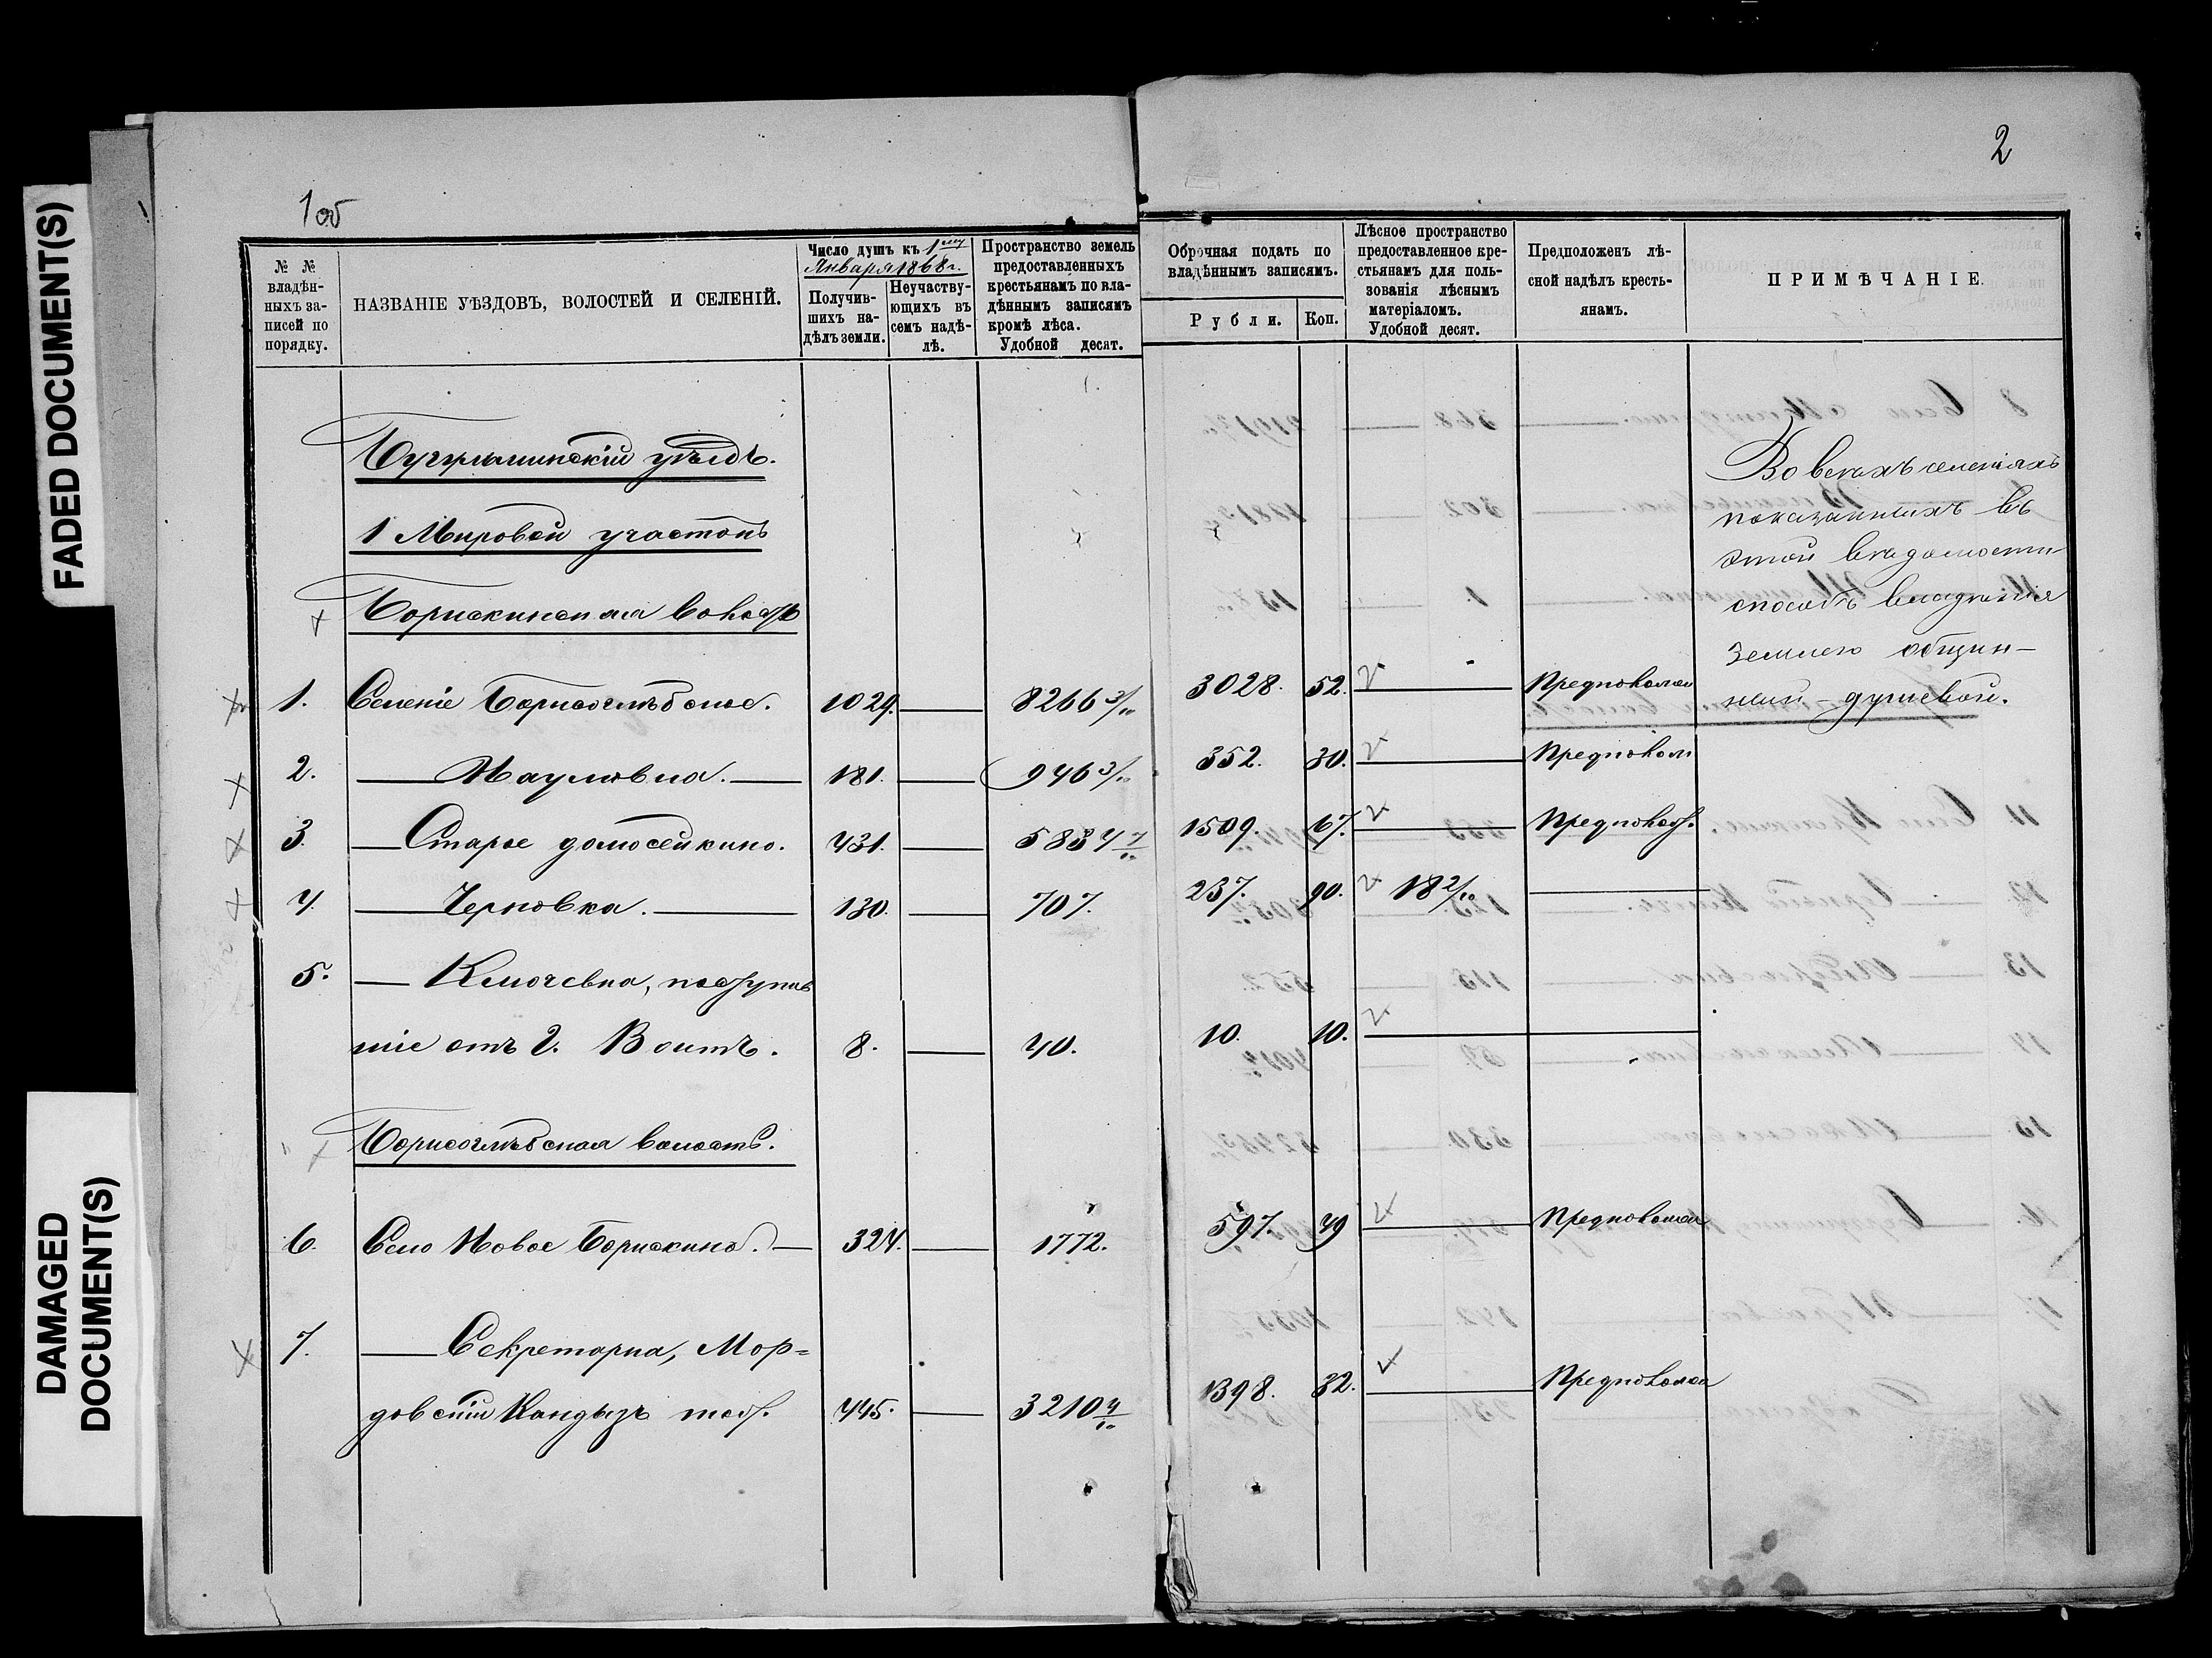 FADED DOCUMENT(S)
DAMAGED DOCUMENT(S)
1 об
2
№ № владѣнныхъ записей по порядку.
НАЗВАНІЕ УѢЗДОВЪ, ВОЛОСТЕЙ И СЕЛЕНІЙ.
Число душъ къ 1му Января 1868 г.
Получившихъ надѣлъ земли.
Неучаствующихъ въ семъ надѣлѣ.
Пространство земель предоставленныхъ крестьянамъ по владѣннымъ записямъ кромѣ лѣса. Удобной десят.
Оброчная подать по владѣннымъ записямъ.
Рубли. Коп.
Лѣсное пространство предоставленное крестьянамъ для пользованія лѣснымъ матеріаломъ. Удобной десят.
Предположенъ лѣсной надѣлъ крестьянамъ.
ПРИМѢЧАНІЕ.
Бугульминскій уѣздъ.
1 Мировой участокъ
Борискинская волость
1. Селеніе Борисоглѣбское. 1029. — 8266 3/10 3028. 52. — Предположен
2. — Наумовка. — 181. — 946 3/10 352. 30. — Предполож
3. — Старое домосейкино. 431. — 5834 7/10 1509. 67. — Предполож.
4. — Черновка. — 130. — 707. 237. 90. 18 2/10 —
5. — Ключевка, поступив
шіе отъ Г. Воитъ. 8. — 40. 10. 10. —
Борисоглѣбская волость.
6. Село Новое Борискино. — 324. — 1772. 597. 49 — Предположен
7. — Секретарка, Мор=
довскій Кандызъ тож. 445. — 3210 4/10 1398. 32. — Предположен
Во всѣхъ селеніяхъ
показанныхъ въ
этой вѣдомости
способъ владѣнія
землею общин-
ный - душевой.